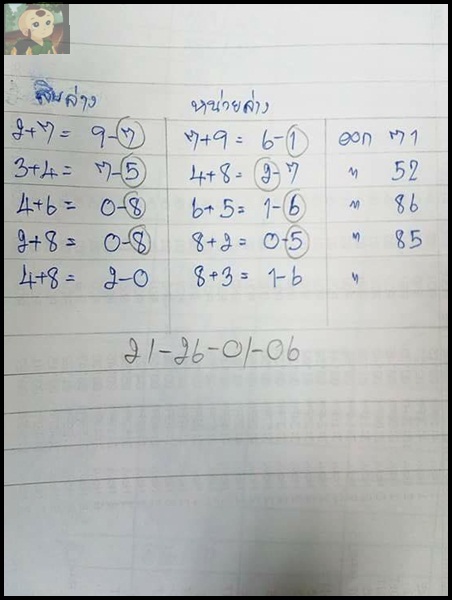 สิบล่าง หน่วยล่าง
2+7= 9-7 7+9= 6-1 ออก 71
3+4= 7-5 4+8= 2-7 " 52
4+6= 0-8 6+5= 1-6 " 86
2+8= 0-8 8+2= 0-5 " 85
4+8= 2-0 8+3= 1-6 "
21-26-01-06